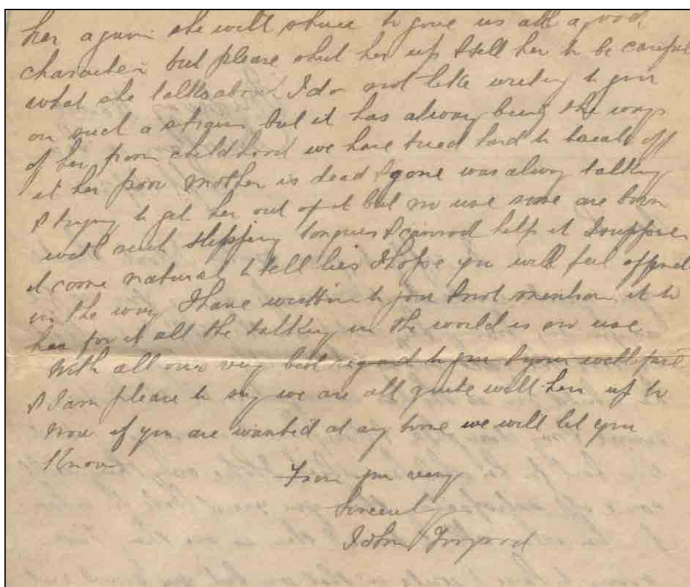 her again she will strive to give us all a good
character but please shut her up & tell her to be careful
what she talks about I do not like writing to you
on such a strain but it has always being the ways
of her from childhood we have tried hard to break off
it her poor mother is dead & gone was alway talking
& trying to get her out of it but no use some are born
with such slipping tongues & cannot help it I suppose
it come natural to tell lies I hope you will feel
in the way I have written to you & not mention it to
her for it all the talking in the world is no use
with all our very best regard to you & your
& I am please to say we are all quite well here up to
now if you are wanted at any time we will let you
know
From you very
Sincerely
John